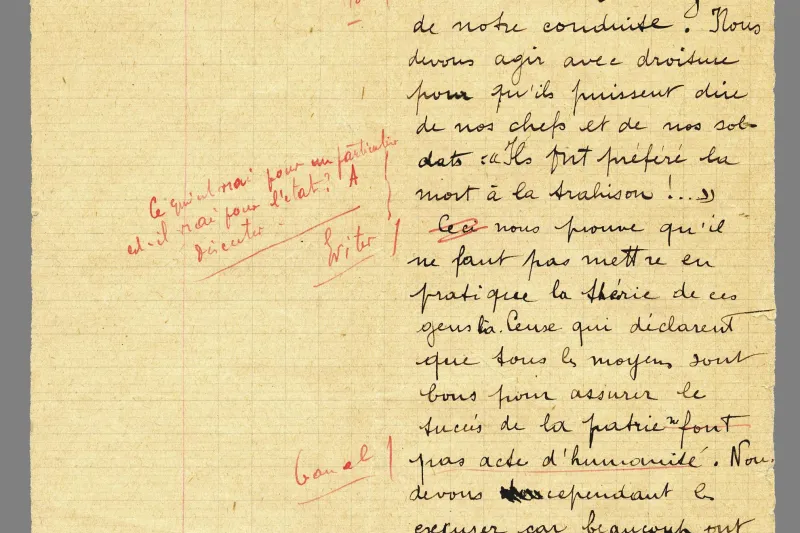 de notre conduite? Nous
devons agir avec droiture
pour qu'ils puissent dire
de nos chefs et de nos sol-
dats : « Ils ont préféré la
mort à la trahison !... »
Ceci nous prouve qu'il
ne faut pas mettre en
pratique la thérie de ces
gens là. Ceuse qui déclarent
que tous les moyens sont
bons pour assurer le
succés de la patrie n' font
pas acte d'humanité. Nou
devons cependant les
excuser car beaucoup ont
Ce qui est vrai pour un particulier
est-il vrai pour l'état? A
discuter.
Eviter
banal